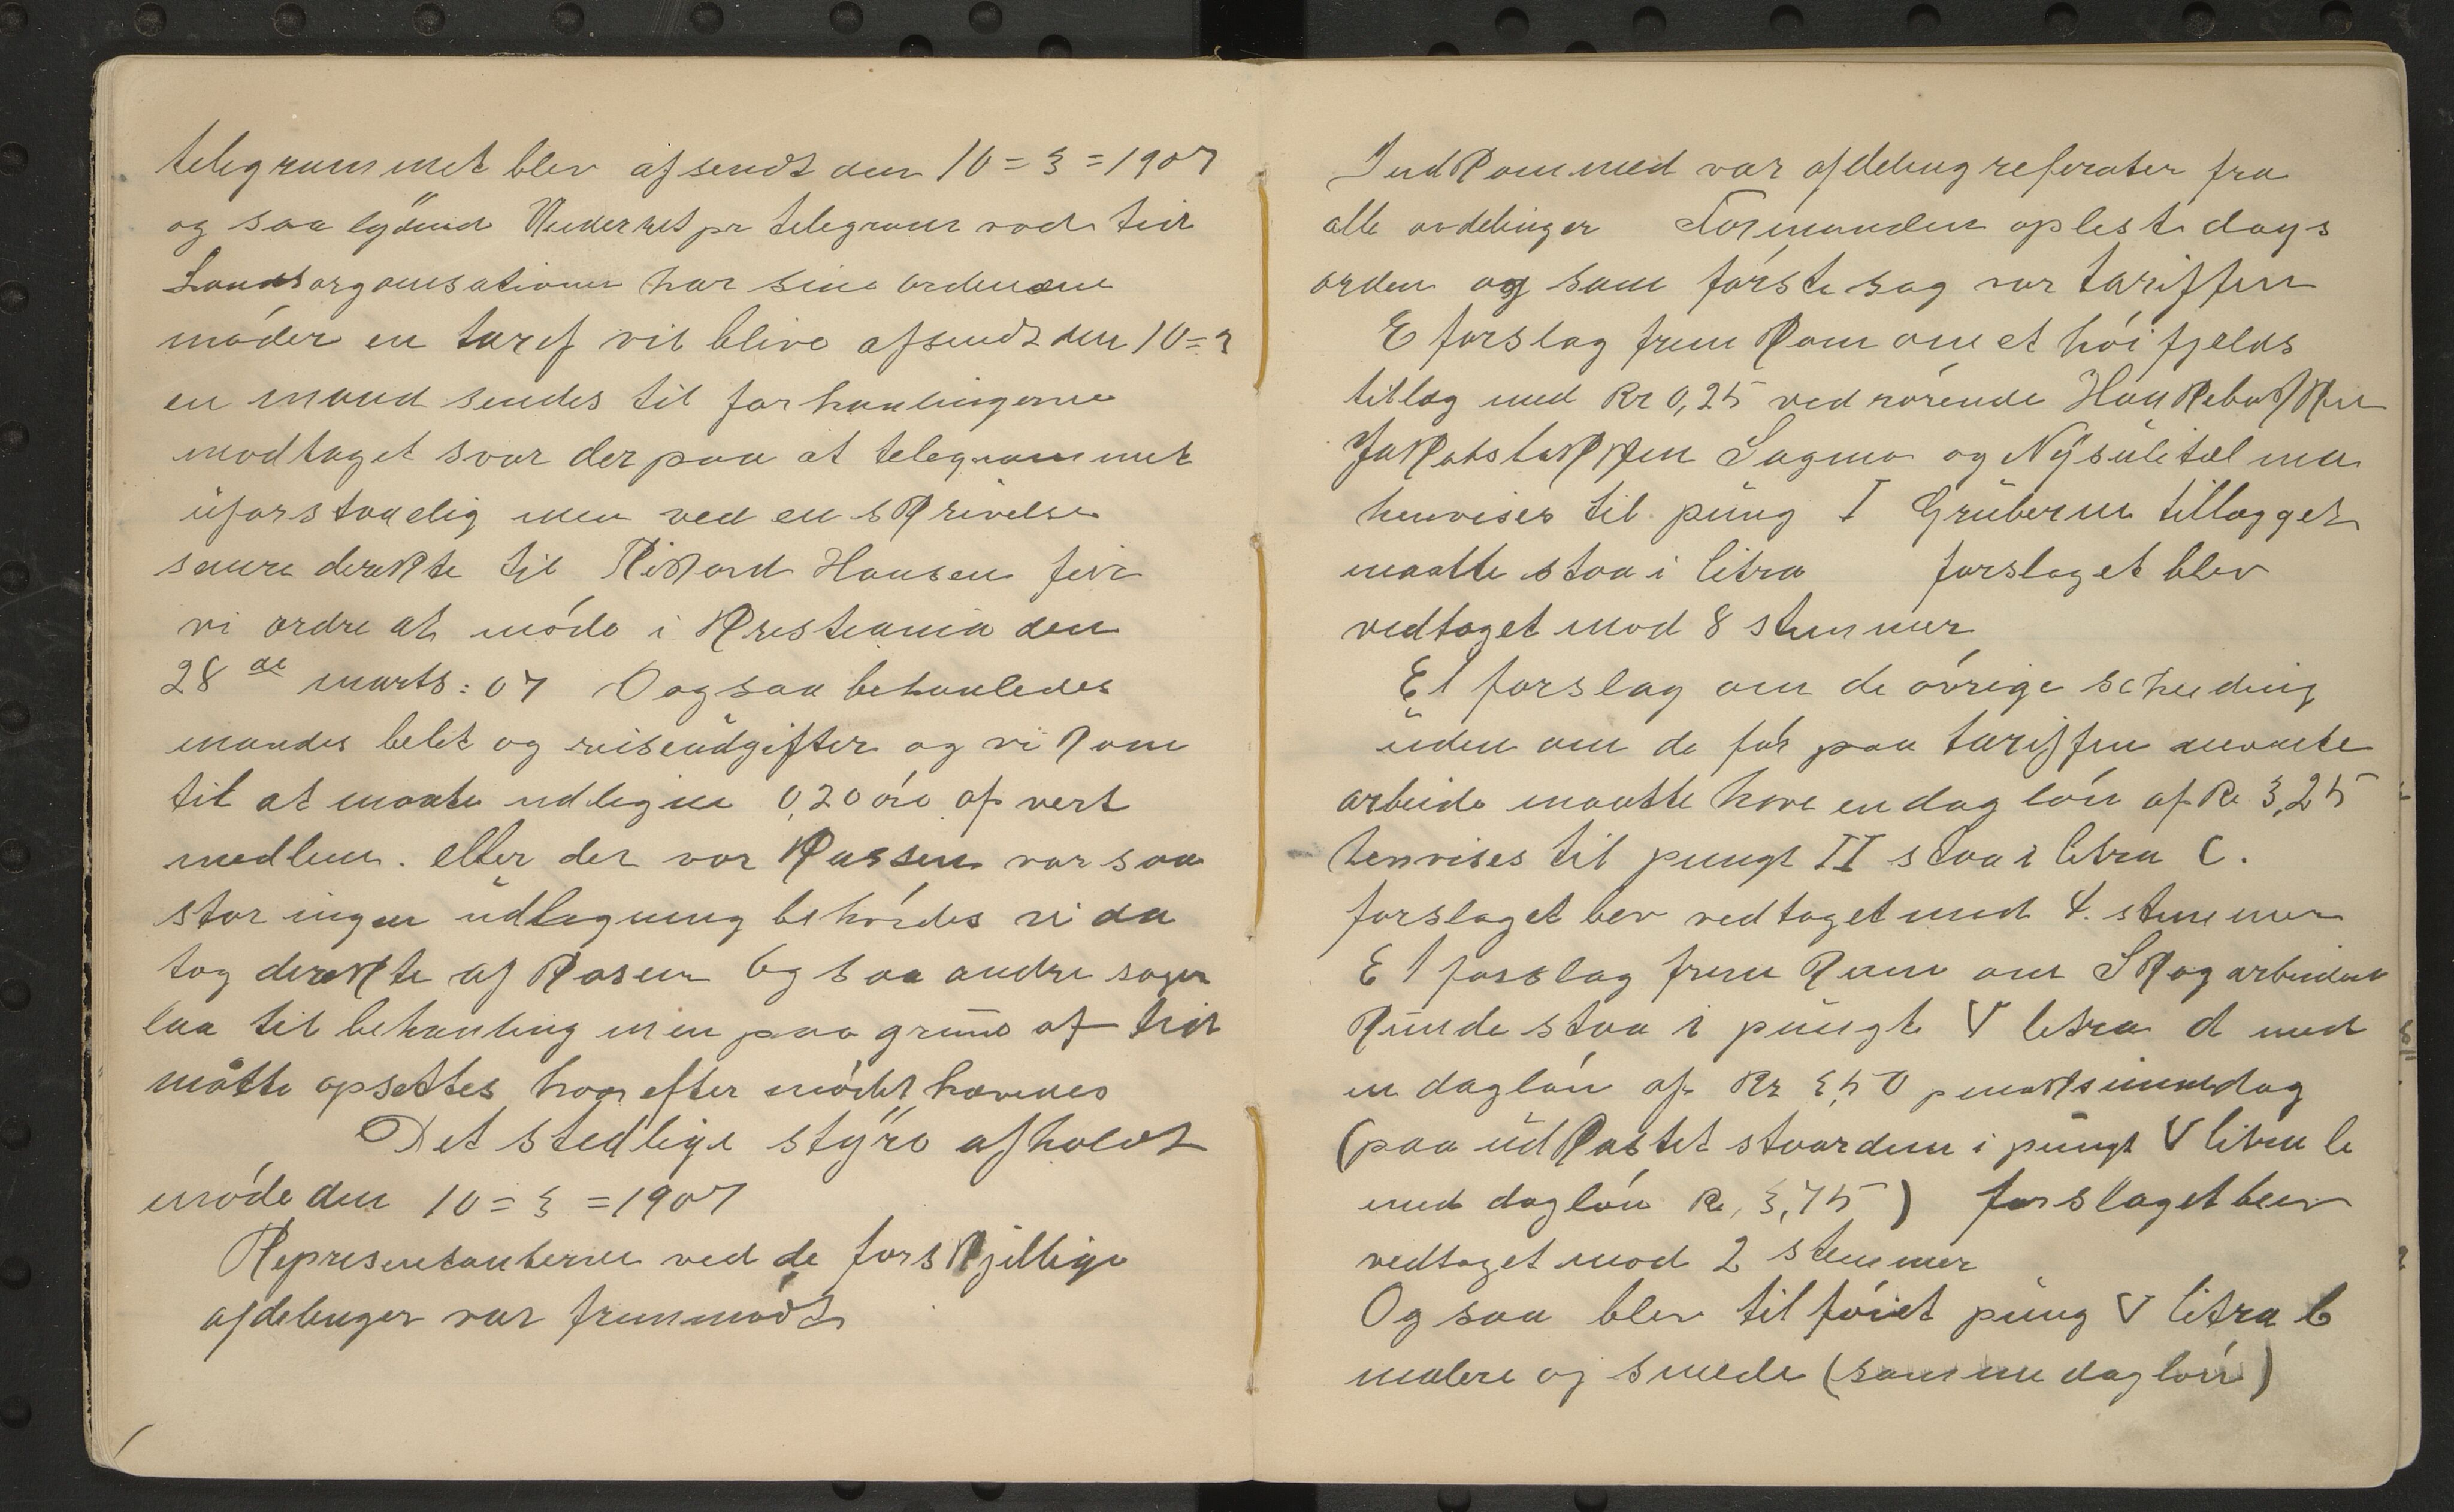 telegrammet blev afsendt den 10=3=1907
og saa lydend Underret pr telegram vod tid
Landsorganisationen har sine ordenære
møder en tarif vil blive afsendt den 10=3
en mand sendes til forhanlingerne
modtaget svar derpaa at telegrammet
uforstaaelig men ved en skrivelse
senere derekte til Rikard Hansen feik
vi ordre at møde i Kristiania den
28 de marts: 07 Oogsaa behanledes
mandes belet og reiseudgifter og vi kom
til at maate udligne 0,20 øre af vert
medlem. eller der vor Kassen var saa
stor ingen udlegning behøvdes vi da
tog derekte af Kasen Ogsaa andre sager
laa til behanling men paa grund af tid
måtte opsettes hvorefter mødet hævedes
Det stedlige styre afholdt
møde den 10=3=1907
Representanterne ved de forskjellige
afdelinger var fremmødt
Indkommed var afdeling referater fra
alle avdelinger Formanden opleste dags
orden og som første sag var tariffen
E forslag frem kom om et høifjelds
tillæg med Kr 0,25 vedrørende Hankabakken
Jakobsbakken Sagmo og Nysulitælma
henvises til pung I Gruberne tillægget
maatte staa i litra forslaget blev
vedtaget mod 8 stemmer
Et forslag om de øvrige scheiding
uden om de før paa tariffen nevnte
arbeide maatte have en dag løn af Kr 3,25
henvises til pungt II staa i litra C.
forslaget bev vedtaget med 4. stemmer
Et forslag frem kom om Skogarbeidere
kunde staa i pungt V litra d med
en dagløn af Kr 3,50 pr maksimumdag
(paa udkastet staar dem i pungt V litra b
med dagløn Kr, 3,75) forslaget blev
vedtaget mod 2 stemmer
Ogsaa blev tilføiet pung V litra b
malere og smede (samme dagløn)